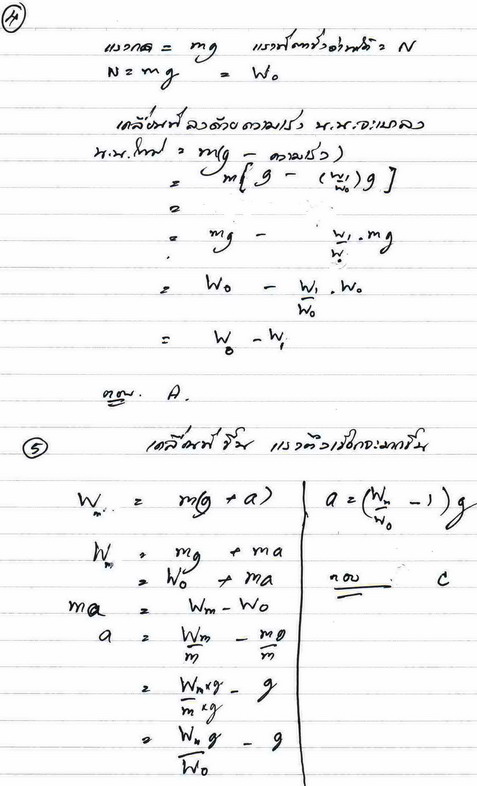 4
แรงกด = mg แรงที่ตาชั่งอ่านได้ = N
N = mg = W₀
เคลื่อนที่ลงด้วยความเร่ง น.น.จะเบาลง
น.น.ใหม่ = m(g - ความเร่ง)
= m[g - (W₁/W₀)g]
=
= mg - W₁/W₀ . mg
= W₀ - W₁/W₀ . W₀
= W₀ - W₁
ตอบ. A.
5
เคลื่อนที่ขึ้น แรงตึงเชือกจะมากขึ้น
Wₘ = m(g + a)
Wₘ = mg + ma
= W₀ + ma
ma = Wₘ - W₀
a = Wₘ/m - m0/m
= Wₘ×g/m×g - g
= Wₘg/W₀ - g
a = (Wₘ/W₀ - 1)g
ตอบ C